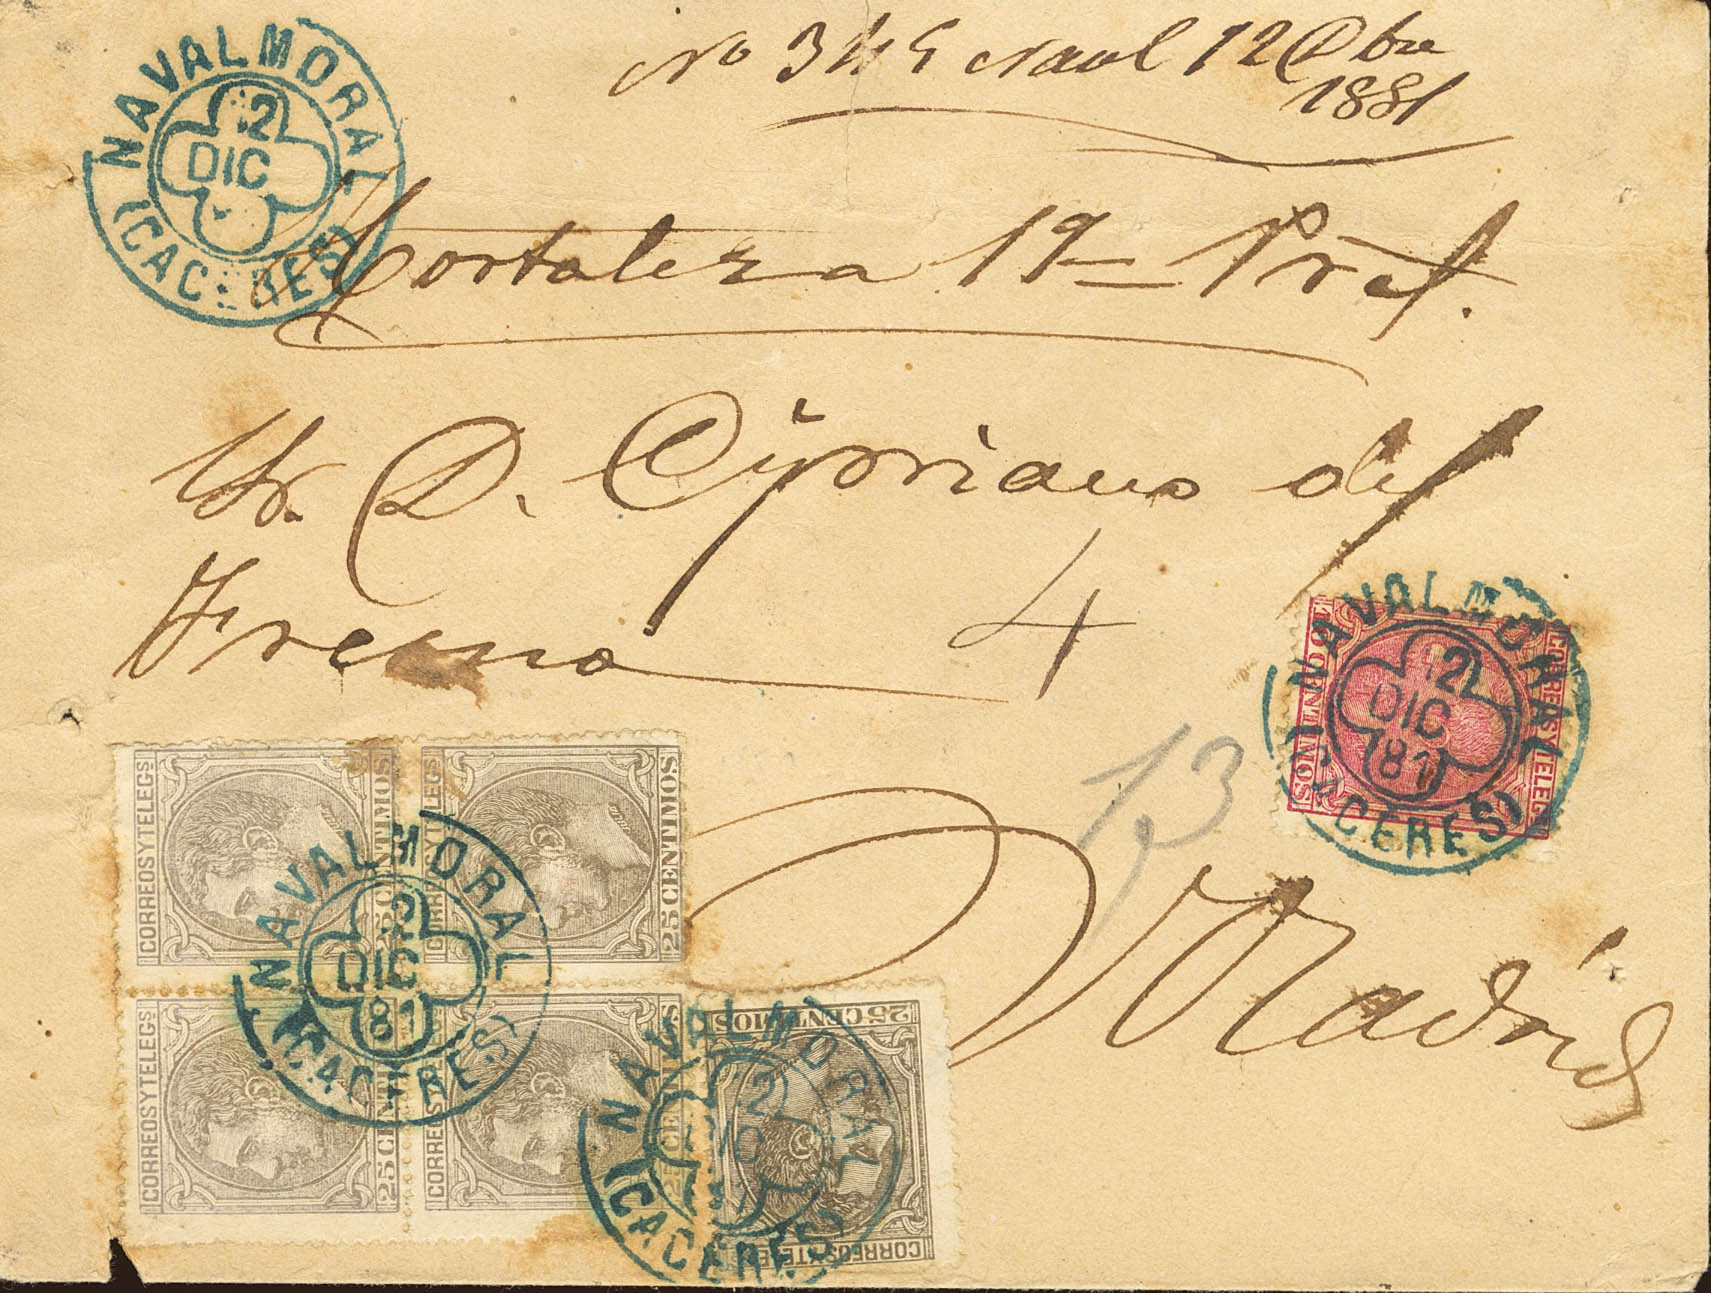 No 345 Naval 12 Dbre
1881
NAVALMORAL
12
DIC
(CACERES)
Hortaleza 19 — Pral.
Sr. D. Cypriano del
Fresno
4
13
Madrid
NAVALMORAL
12
DIC
81
(CACERES)
CORREOS Y TELEGS
10 CENTIMOS
CORREOS Y TELEGS
25 CENTIMOS
CORREOS Y TELEGS
25 CENTIMOS
NAVALMORAL
12
DIC
81
(CACERES)
CORREOS Y TELEGS
25 CENTIMOS
CORREOS Y TELEGS
25 CENTIMOS
NAVALMORAL
12
DIC
81
(CACERES)
25 CENTIMOS
CORREOS Y TELEGS